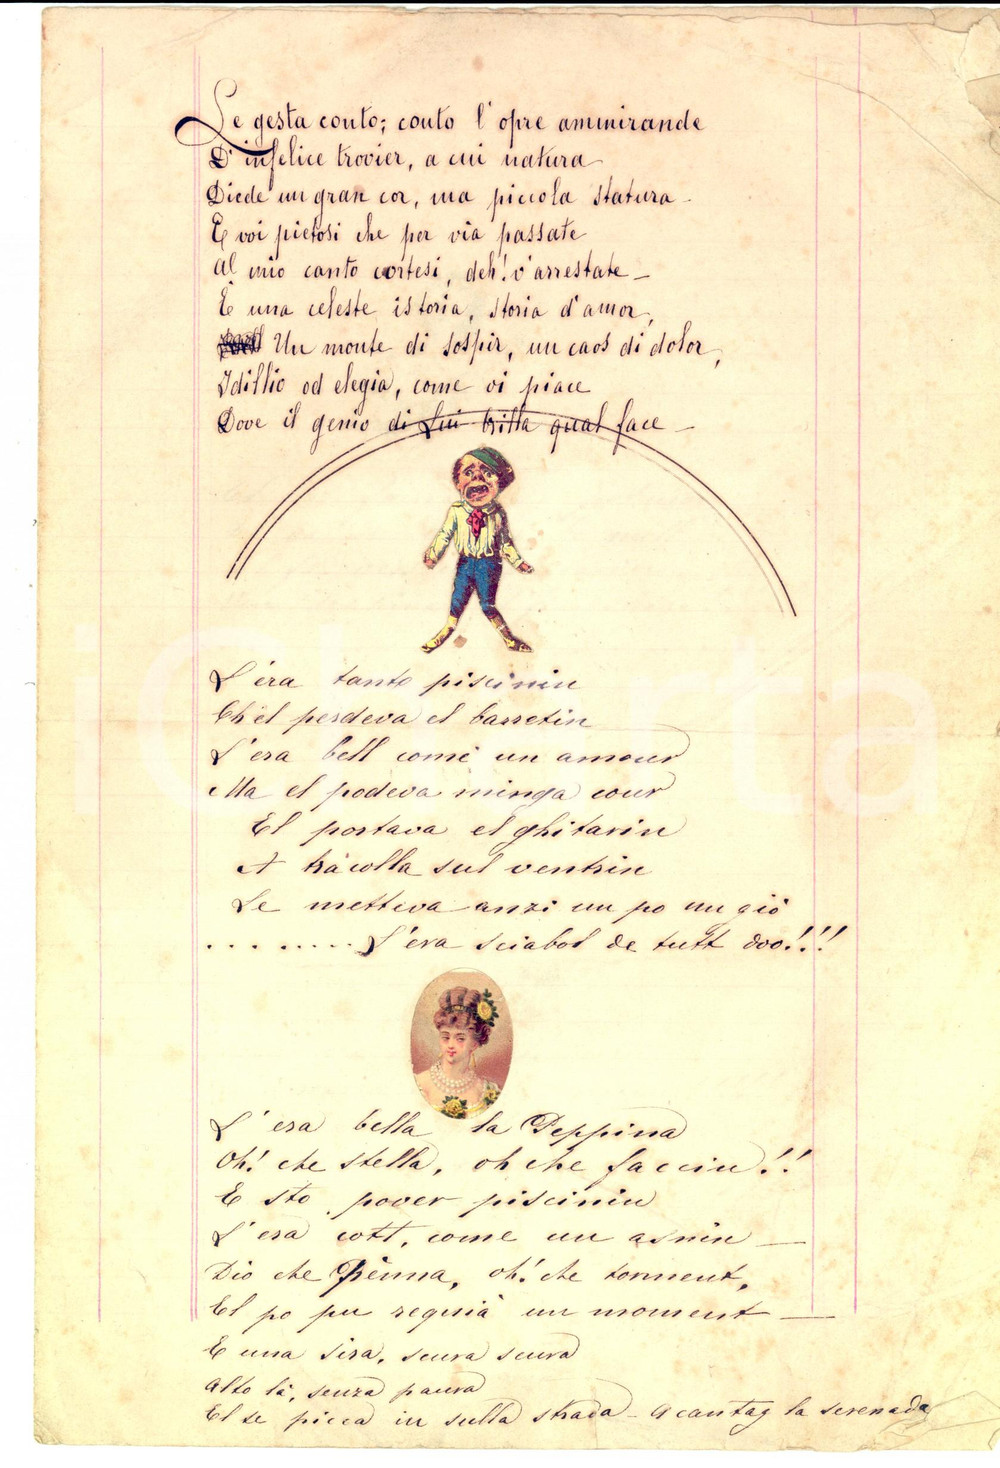 Le gesta conto; conto l'opre ammirande
D'infelice trovier, a cui natura
Diede un gran cor, ma piccola statura -
E voi pietosi che per via passate
Al mio canto cortesi, deh! v'arrestate -
È una celeste istoria, storia d'amor,
Un monte di sospir, un caos di dolor,
Idillio od elegia, come vi piace
Dove il genio di Lui brilla qual face -
L'era tanto piscinin
Ch'el perdeva el barretin
L'era bell comè un amour
Ma el podeva minga cour
El portava el ghitarin
A tràcolla sul ventrin
Se metteva anzi un po un giò
......... L'era sciabol de tutt doo!!!
L'era bella la Peppina
Oh! che stella, oh che faccin!!
E sto pover piscinin
L'era cott, come un asnin -
Dio che pènna, oh! che torment,
El po pu regnià un moment -
E una sira, scura scura
Alto là, senza paura
El se picca in sulla strada - a cantag la serenada